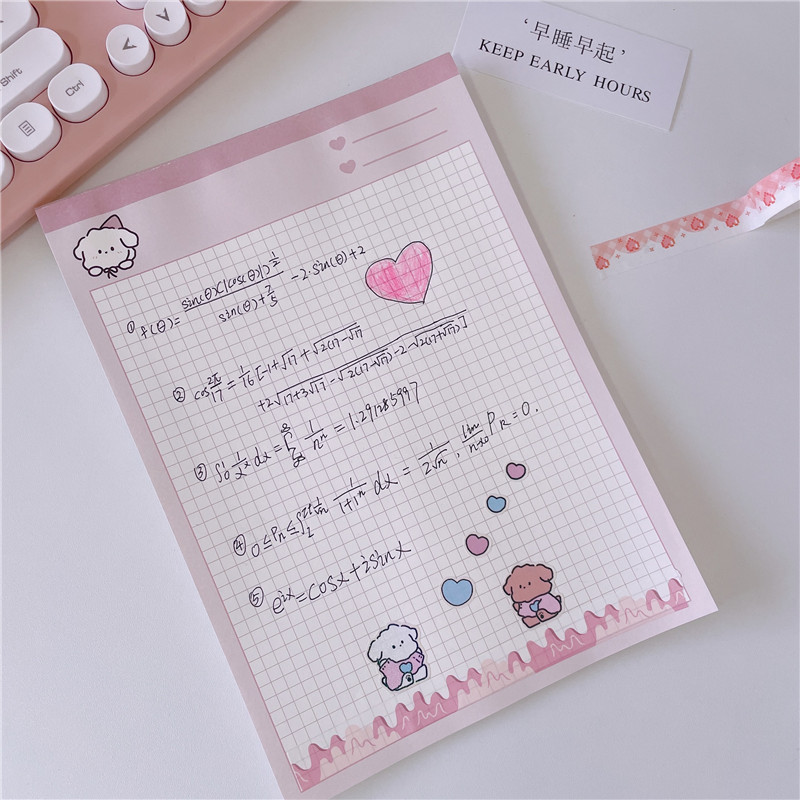 Shift
Ctrl
‘早睡早起’
KEEP EARLY HOURS
① f(θ)= sin(θ)(|cos(θ)|)^1/2 / sin(θ)+7/5 -2·sin(θ)+2
② cos 2π/17 = 1/16 [-1+√17+√2(17-√17
+2√17+3√17-√2(17-√17)-2-√2(17+√17)]
③ ∫0 1/x^x dx = ∑ 1/n^n = 1.291285997
④ 0≤Pn≤ 1/1+1^n dx = 1/2√n, lim n→0 PR=0.
⑤ e^2x=cosx+2sinx